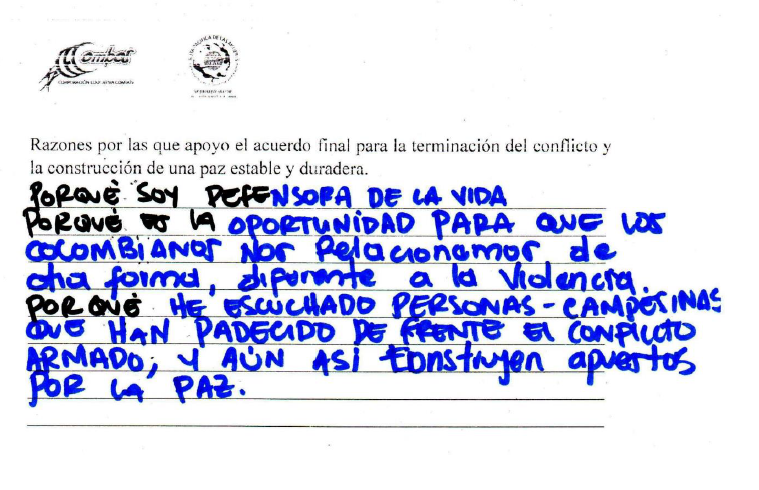 Combos
CORPORACIÓN EDUCATIVA COMBOS
Razones por las que apoyo el acuerdo final para la terminación del conflicto y
la construcción de una paz estable y duradera.
PORQUÉ SOY DEFENSORA DE LA VIDA
PORQUÉ ES LA OPORTUNIDAD PARA QUE LOS
COLOMBIANOS NOS Relacionamos de
otra forma, diferente a la Violencia.
PORQUÉ HE ESCUCHADO PERSONAS-CAMPESINAS
QUE HAN PADECIDO DE FRENTE EL CONFLICTO
ARMADO, Y AÚN ASÍ construyen apuestas
POR LA PAZ.